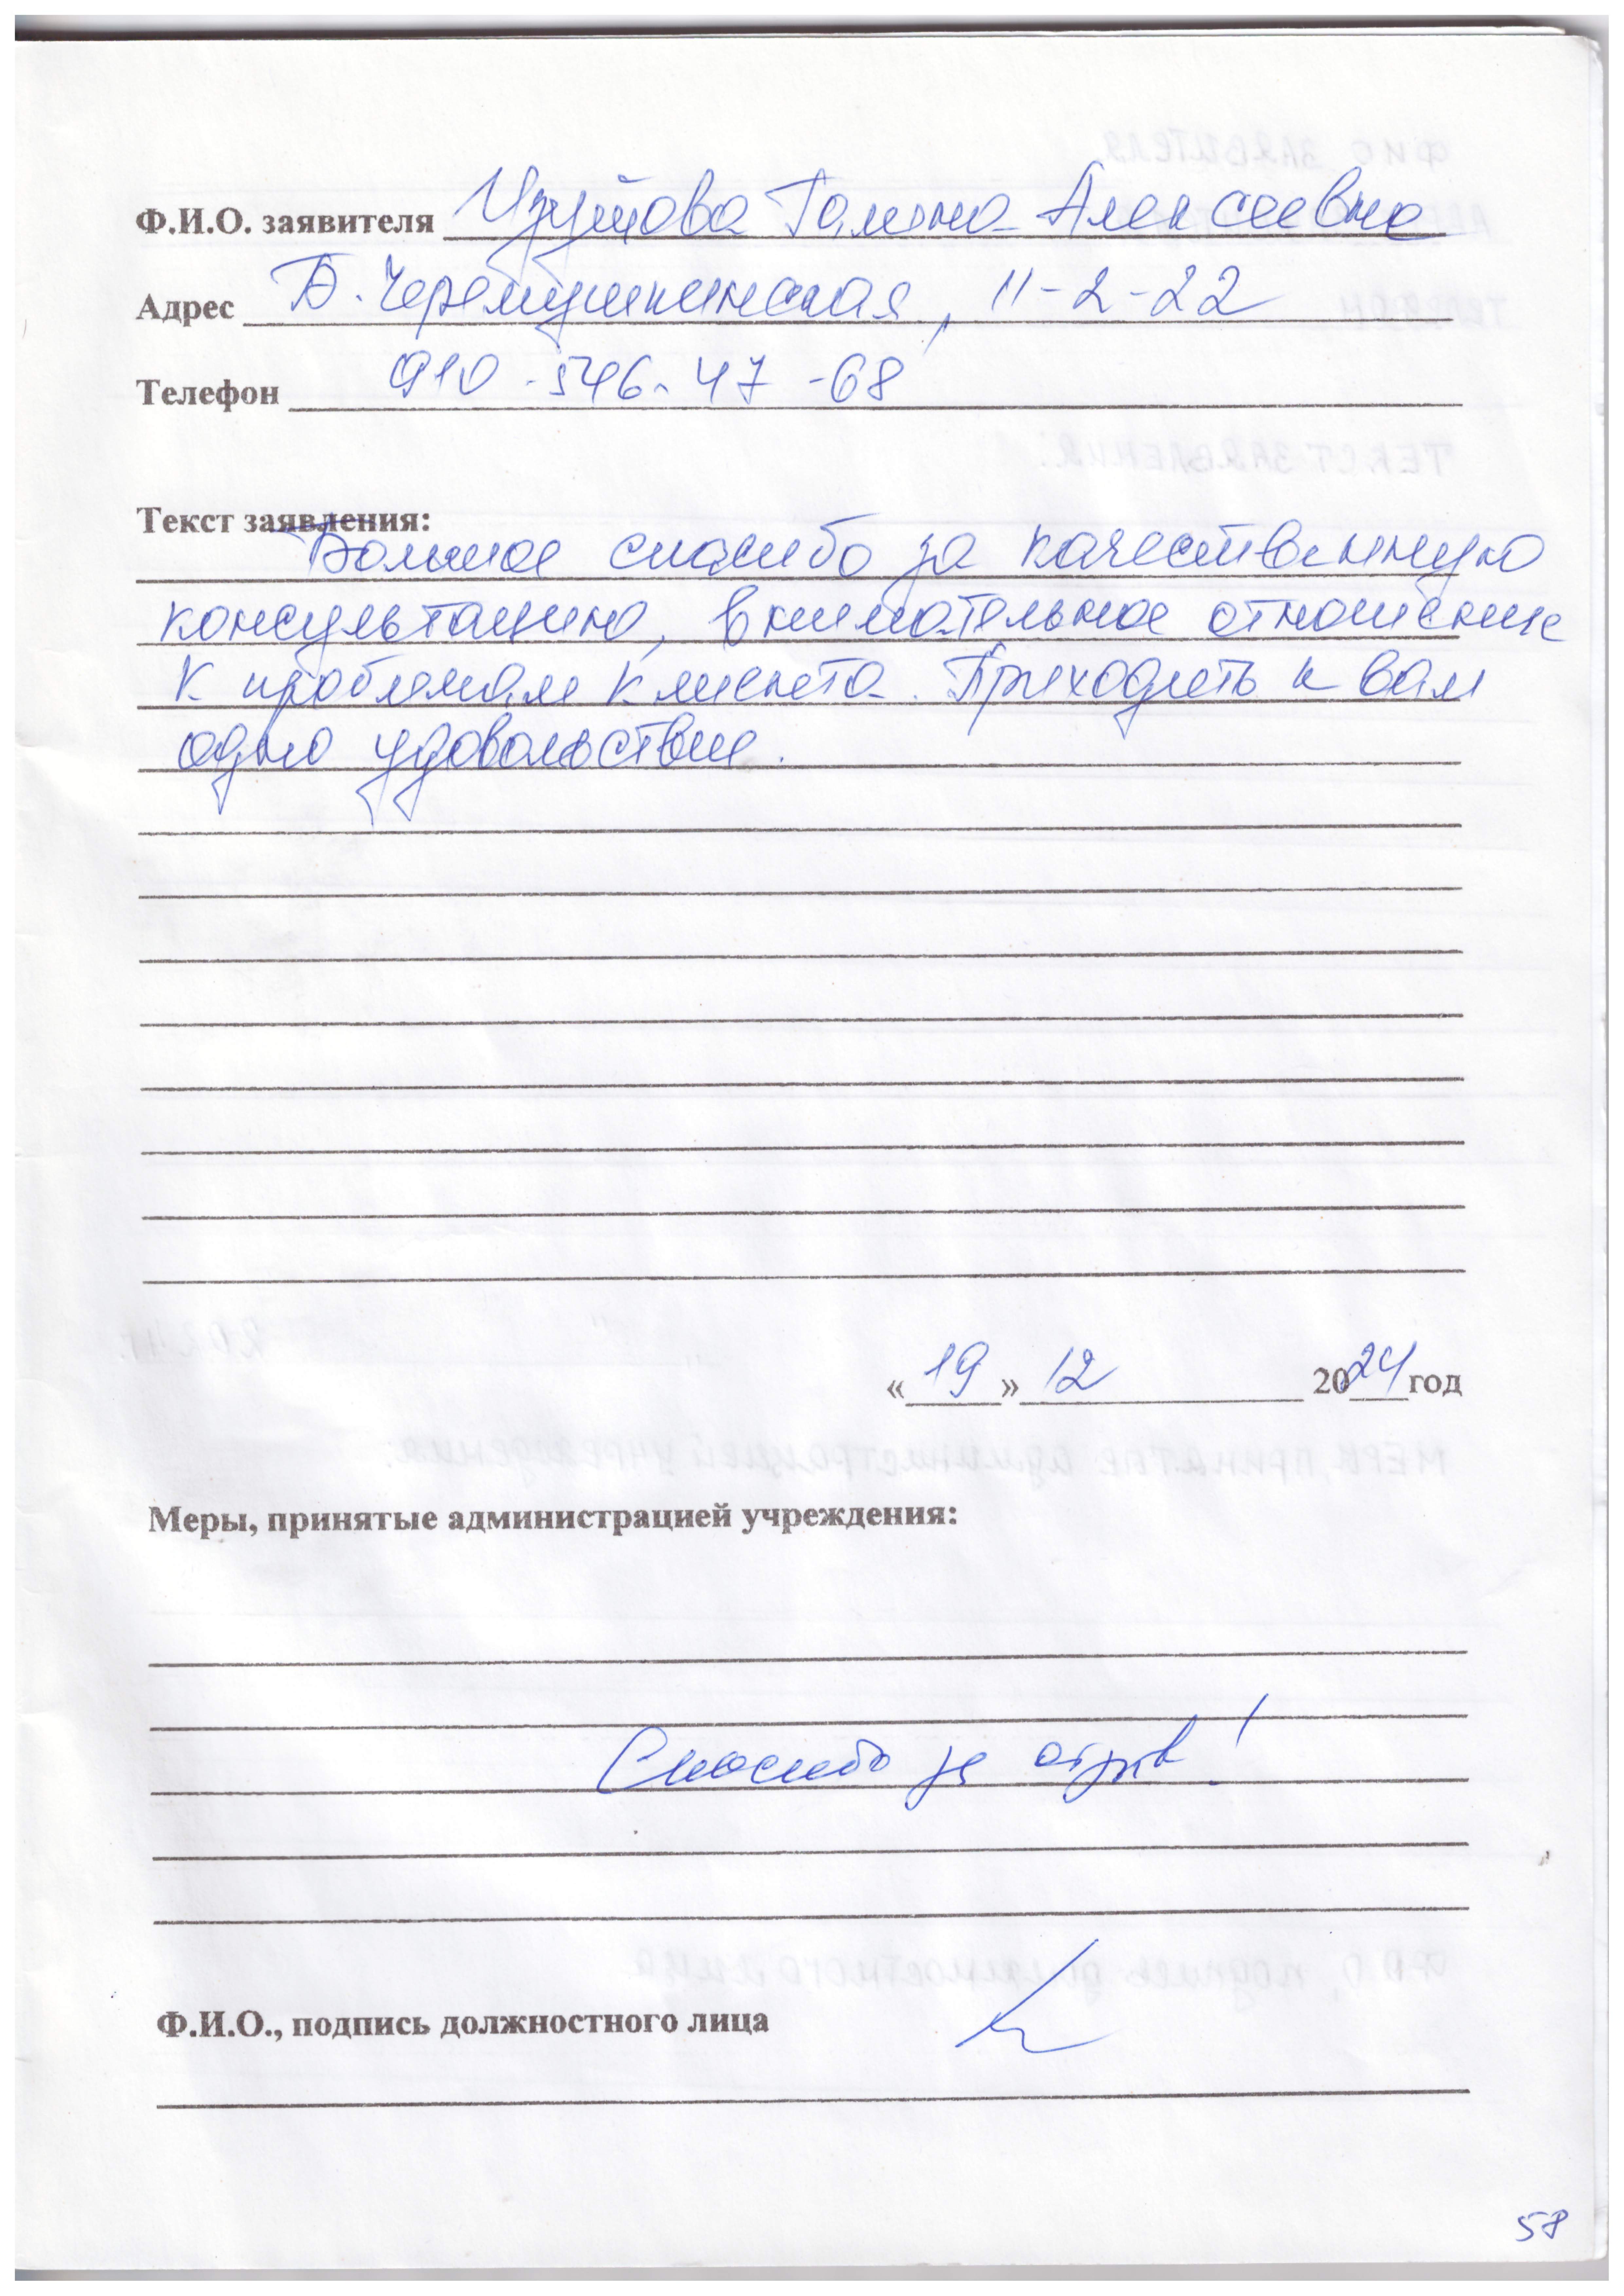 Ф.И.О. заявителя Галина Алексеевна
Адрес Б. Черемушкинская, 11-2-22
Телефон 910-546-47-68
Текст заявления:
Большое спасибо за качественную
консультацию, внимательное отношение
к проблемам клиента. Приходить к вам
одно удовольствие.
«19» 12 2024 год
Меры, принятые администрацией учреждения:
Спасибо за отзыв!
Ф.И.О., подпись должностного лица
58